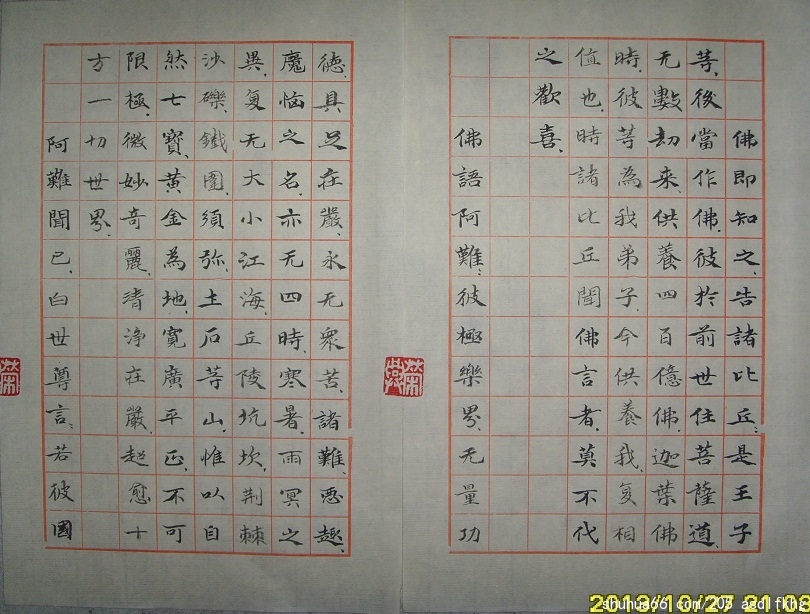 佛即知之告諸比丘是王子
等後當作佛彼於前世住菩薩道
无數劫来供養四百億佛迦葉佛
時彼等為我弟子今供養我复相
值也時諸比丘聞佛言者莫不代
之歡喜
佛語阿難彼極樂界无量功
德具足在嚴永无衆苦諸難惡趣
魔恼之名亦无四時寒暑雨冥之
異复无大小江海丘陵坑坎荆棘
沙礫鐵圍須弥土石等山惟以自
然七寶黄金為地寬廣平正不可
限極微妙奇麗清淨在嚴超愈十
方一切世界
阿難聞已白世尊言若彼國
2013/10/27 21:08